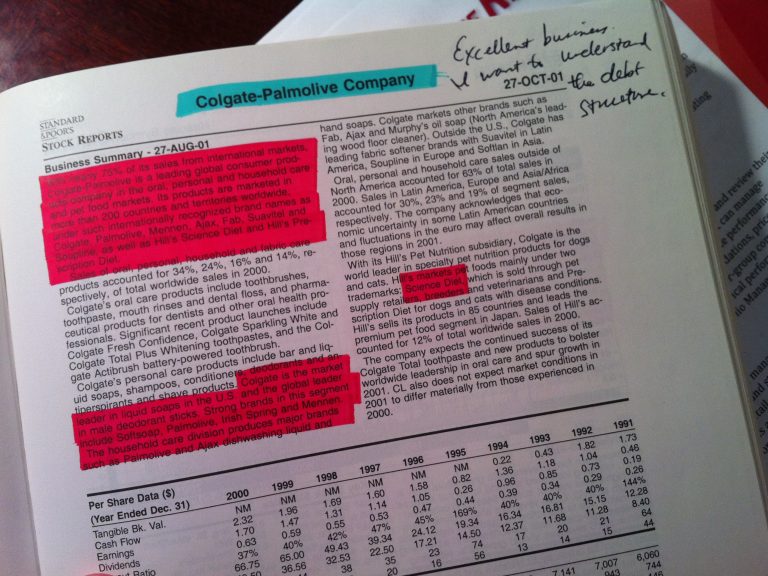 Excellent business.
I want to understand
the debt
structure.
Colgate-Palmolive Company
27-OCT-01
STANDARD
&POOR'S
STOCK REPORTS
Business Summary - 27-AUG-01
nearly 75% of its sales from international markets,
Colgate-Palmolive is a leading global consumer prod-
ucts company in the oral, personal and household care
and pet food markets. Its products are marketed in
more than 200 countries and territories worldwide,
under such internationally recognized brand names as
Colgate, Palmolive, Mennen, Ajax, Fab, Suavitel and
Soupline, as well as Hill's Science Diet and Hill's Pre-
scription Diet.
Sales of oral, personal, household and fabric care
products accounted for 34%, 24%, 16% and 14%, re-
spectively, of total worldwide sales in 2000.
Colgate's oral care products include toothbrushes,
toothpaste, mouth rinses and dental floss, and pharma-
ceutical products for dentists and other oral health pro-
fessionals. Significant recent product launches include
Colgate Fresh Confidence, Colgate Sparkling White and
Colgate Total Plus Whitening toothpastes, and the Col-
gate Actibrush battery-powered toothbrush.
Colgate's personal care products include bar and liq-
uid soaps, shampoos, conditioners, deodorants and an-
tiperspirants and shave products. Colgate is the market
leader in liquid soaps in the U.S. and the global leader
in male deodorant sticks. Strong brands in this segment
include Softsoap, Palmolive, Irish Spring and Mennen.
The household care division produces major brands
such as Palmolive and Ajax dishwashing liquid and
hand soaps. Colgate markets other brands such as
Fab, Ajax and Murphy's oil soap (North America's lead-
ing wood floor cleaner). Outside the U.S., Colgate has
leading fabric softener brands with Suavitel in Latin
America, Soupline in Europe and Softlan in Asia.
Oral, personal and household care sales outside of
North America accounted for 63% of total sales in
2000. Sales in Latin America, Europe and Asia/Africa
accounted for 30%, 23% and 19% of segment sales,
respectively. The company acknowledges that eco-
nomic uncertainty in some Latin American countries
and fluctuations in the euro may affect overall results in
those regions in 2001.
With its Hill's Pet Nutrition subsidiary, Colgate is the
world leader in specialty pet nutrition products for dogs
and cats. Hill's markets pet foods mainly under two
trademarks: Science Diet, which is sold through pet
supply retailers, breeders and veterinarians and Pre-
scription Diet for dogs and cats with disease conditions.
Hill's sells its products in 85 countries and leads the
premium pet food segment in Japan. Sales of Hill's ac-
counted for 12% of total worldwide sales in 2000.
The company expects the continued success of its
Colgate Total toothpaste and new products to bolster
worldwide leadership in oral care and spur growth in
2001. CL also does not expect market conditions in
2001 to differ materially from those experienced in
2000.
Per Share Data ($)
(Year Ended Dec. 31) 2000 1999 1998 1997 1996 1995 1994 1993 1992 1991
Tangible Bk. Val. NM NM NM NM NM NM 0.22 0.43 1.82 1.73
Cash Flow 2.32 1.96 1.69 1.60 1.58 0.82 1.36 1.18 1.04 0.46
Earnings 1.70 1.47 1.31 1.14 1.05 0.26 0.96 0.85 0.73 0.19
Dividends 0.63 0.59 0.55 0.53 0.47 0.44 0.39 0.34 0.29 0.26
Ratio 37% 40% 42% 47% 45% 169% 40% 40% 40% 144%
66.75 65.00 49.43 39.34 24.12 19.34 16.34 16.81 15.15 12.28
36.56 32.53 22.50 17.21 14.50 12.37 11.68 11.28 8.40